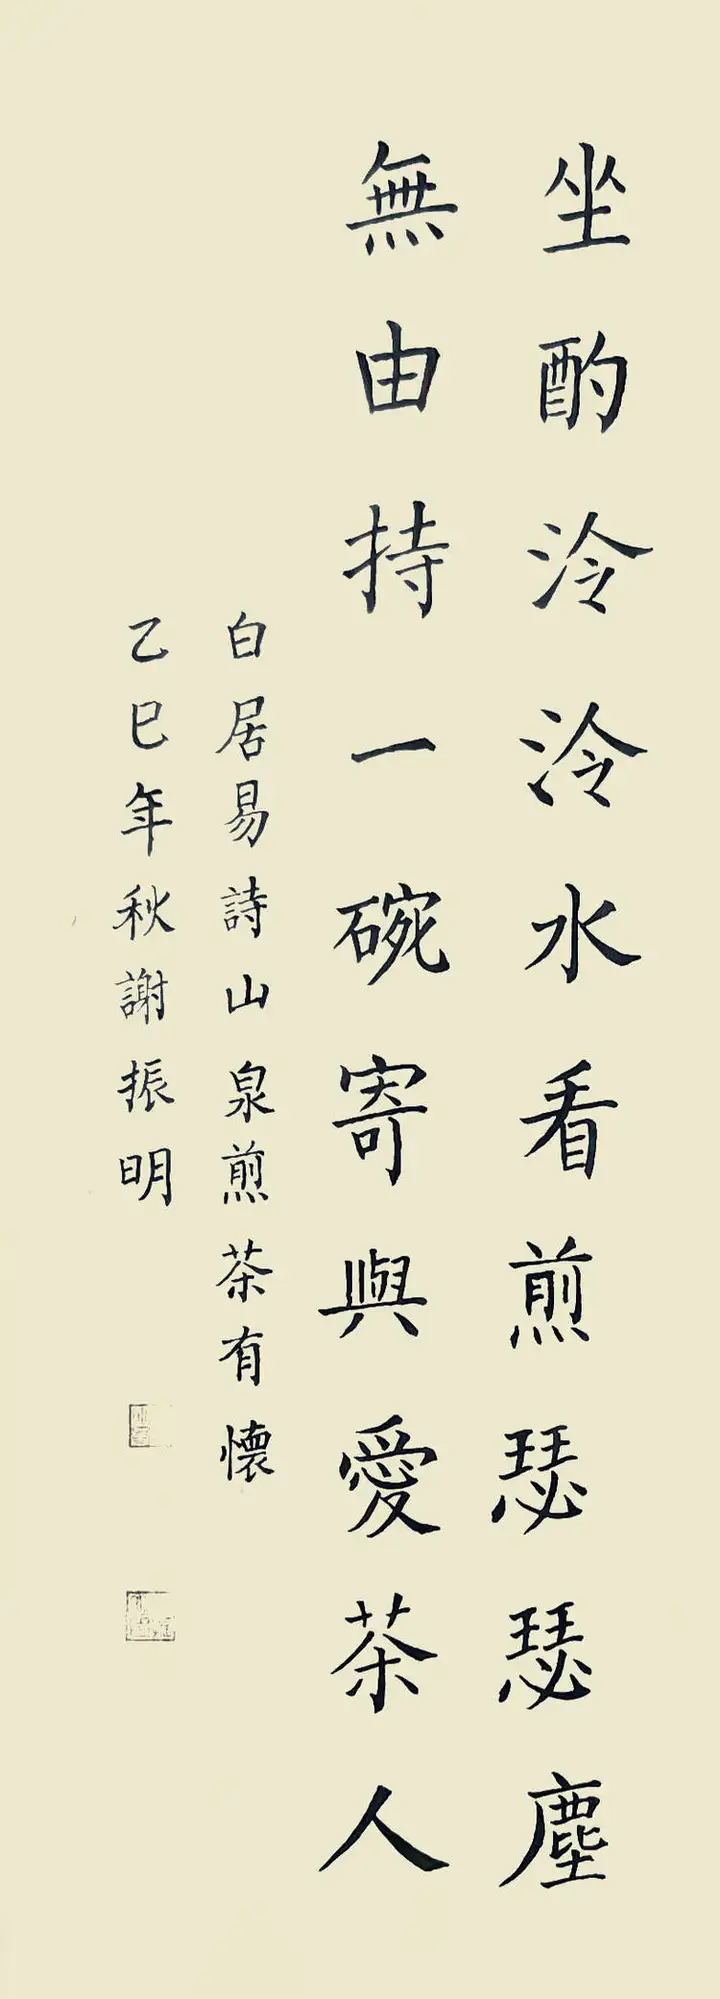 坐酌泠泠水看煎瑟瑟塵
無由持一碗寄與愛茶人
白居易詩山泉煎茶有懷
乙巳年秋謝振明